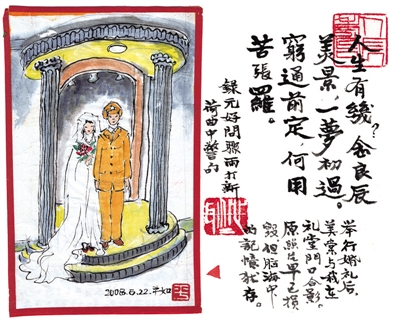 人生有幾?念良辰
美景,一夢初過。
窮通前定,何用
苦張羅。
錄元好問驟雨打新
荷曲中警句
舉行婚礼后,
美棠与我在
礼堂門口合影。
原照片早已損
毀但脑海中
的記憶犹存。
2008.6.22.平如